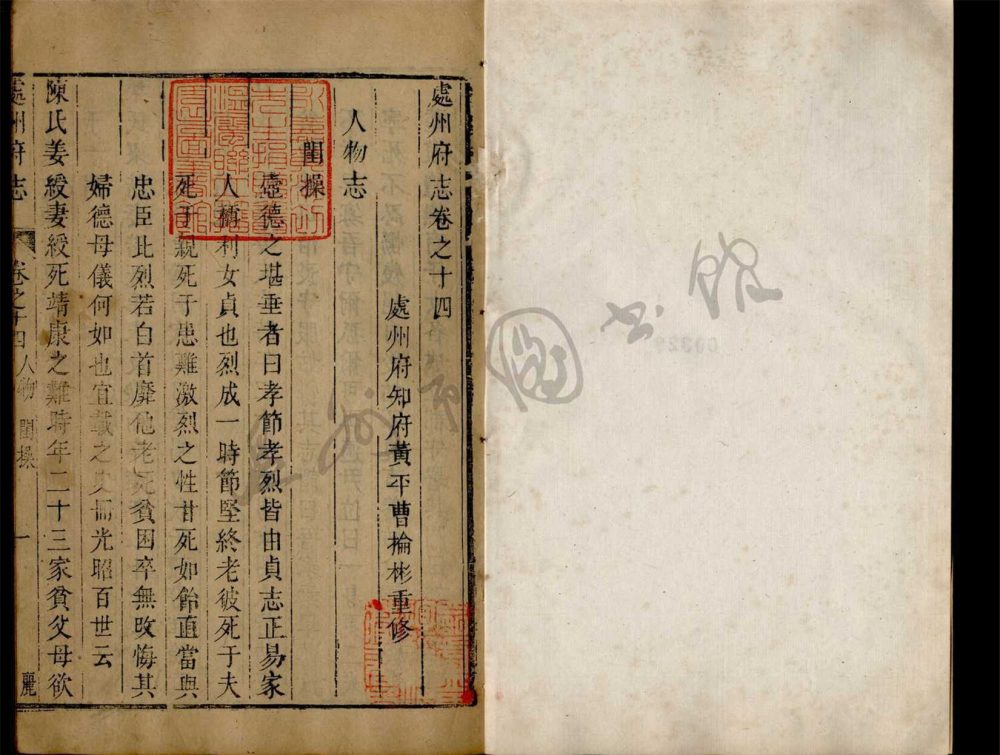 處州府志卷之十四
處州府知府黃平曹掄彬重修
人物志
閨操
壼德之堪垂者曰孝節孝烈皆由貞志正易家
人稱利女貞也烈成一時節堅終老彼死于夫
死于親死于患難激烈之性甘死如飴直當與
忠臣比烈若白首靡他老死貧困卒無改悔其
婦德母儀何如也宜載之史冊光昭百世云
陳氏姜綬妻綬死靖康之難時年二十三家貧父母欲
處州府志
卷之十四人物 閨操
一
麗
圖書館